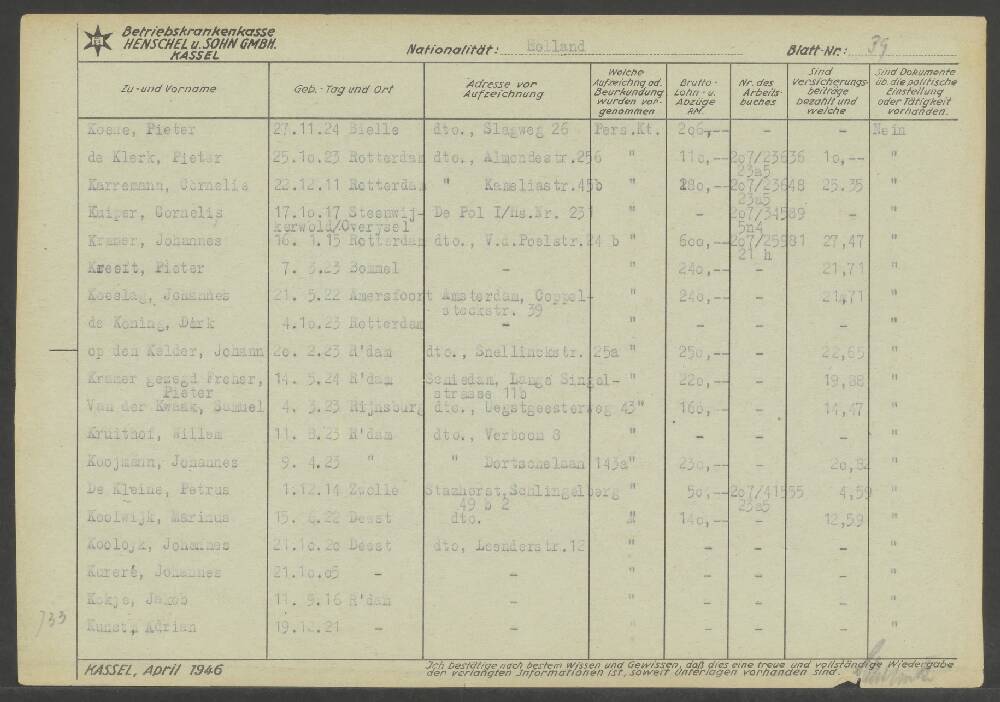 Betriebskrankenkasse
HENSCHEL u. SOHN GMBH.
KASSEL
Nationalität: Holland
Blatt-Nr: 39
Zu- und Vorname
Geb.-Tag und Ort
Adresse vor Aufzeichnung
Welche Aufzeichng od. Beurkundung wurden vorgenommen
Brutto-Lohn- u. Abzüge RM.
Nr. des Arbeitsbuches
Sind Versicherungsbeiträge bezahlt und welche
Sind Dokumente üb. die politische Einstellung oder Tätigkeit vorhanden.
Koene, Pieter 27.11.24 Bielle dto., Slagweg 26 Pers.Kt. 2o6,-- - - Nein
de Klerk, Pieter 25.1o.23 Rotterdam dto., Almondestr.256 " 11o,-- 2o7/23636 1o,-- "
23a5
Karremann, Cornelis 22.12.11 Rotterdam " Kameliastr.45b " 28o,-- 2o7/23648 25.35 "
23a5
Kuiper, Cornelis 17.1o.17 Steenwij- De Pol I/Hs.Nr. 231 " - 2o7/34589 - "
kerwold/Overysel 5n4
Kramer, Johannes 16. 1.15 Rotterdam dto., V.d.Poelstr.24 b " 6oo,-- 2o7/25981 27,47 "
21 h
Kreeft, Pieter 7. 3.23 Bommel - " 24o,-- - 21,71 "
Koeslag, Johannes 21. 5.22 Amersfoort Amsterdam, Coppel- " 24o,-- - 21,71 "
stockstr. 39
de Koning, Dirk 4.1o.23 Rotterdam - " - - - "
op den Kelder, Johann 2o. 2.23 R'dam dto., Snellinckstr. 25a " 25o,-- - 22,65 "
Kramer gezegd Freher, 14. 5.24 R'dam Schiedam, Lange Singel- " 22o,-- - 19,88 "
Pieter strasse 11b
Van der Kwaak, Samuel 4. 3.23 Rijnsburg dto., Oegstgeesterweg 43" 16o,-- - 14,47 "
Kruithof, Willem 11. 8.23 R'dam dto., Verboom 8 " - - - "
Koojmann, Johannes 9. 4.23 " " Dortschelaan 143a" 23o,-- - 2o,82 "
De Kleine, Petrus 1.12.14 Zwolle Stazhorst,Schlingelberg " 5o,-- 2o7/41555 4,59 "
49 b 2 23a5
Koolwijk, Marinus 15. 6.22 Deest dto. " 14o,-- - 12,59 "
Koolojk, Johannes 21.1o.2o Deest dto, Leenderstr.12 " - - - "
Kureré, Johannes 21.1o.o5 - - " - - - "
Kokje, Jakob 11. 9.16 R'dam - " - - - "
733
Kunst, Adrian 19.12.21 - - " - - - "
KASSEL, April 1946
Ich bestätige nach bestem Wissen und Gewissen, daß dies eine treue und vollständige Wiedergabe
der verlangten Informationen ist, soweit Unterlagen vorhanden sind.